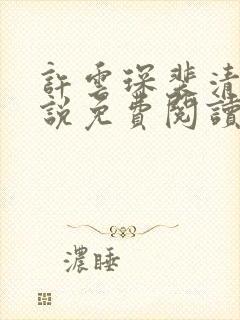 許雲琛裴清
說免費閱讀
濃睡